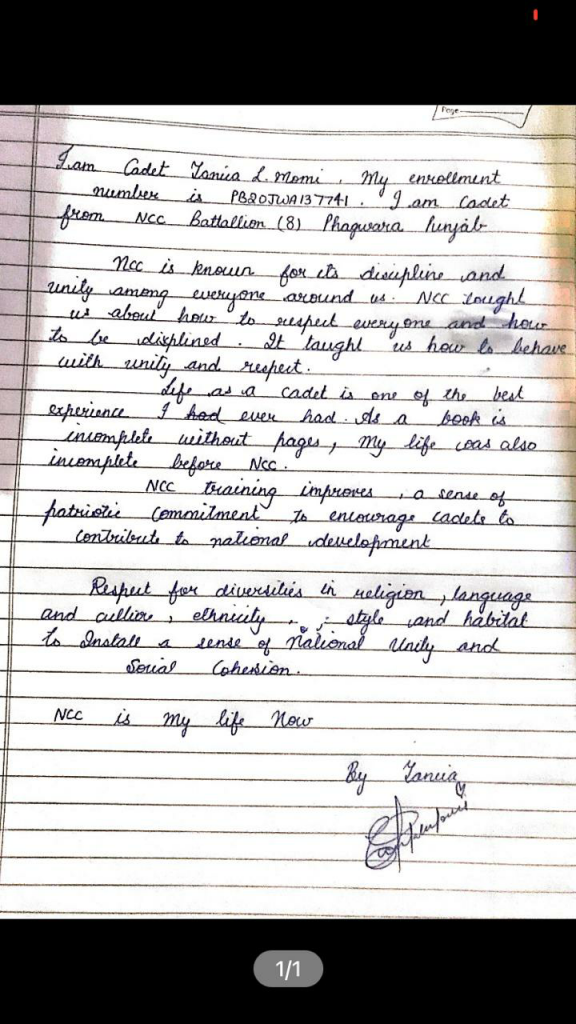 Page
I am Cadet Tania L. Momi. My enrollment
number is PB20JWA137741. I am cadet
from NCC Battallion (8) Phagwara Punjab
NCC is known for its discipline and
unity among everyone around us. NCC tought
us about how to respect everyone and how
to be displined. It taught us how to behave
with unity and respect.
Life as a cadet is one of the best
experience I had ever had. As a book is
incomplete without pages, my life was also
incomplete before NCC.
NCC training improves, a sense of
patriotic commitment to encourage cadets to
contribute to national development
Respect for diversities in religion, language
and culture, ethnicity, style and habitat
to Install a sense of National Unity and
Social Cohersion.
NCC is my life Now
By Tania
1/1